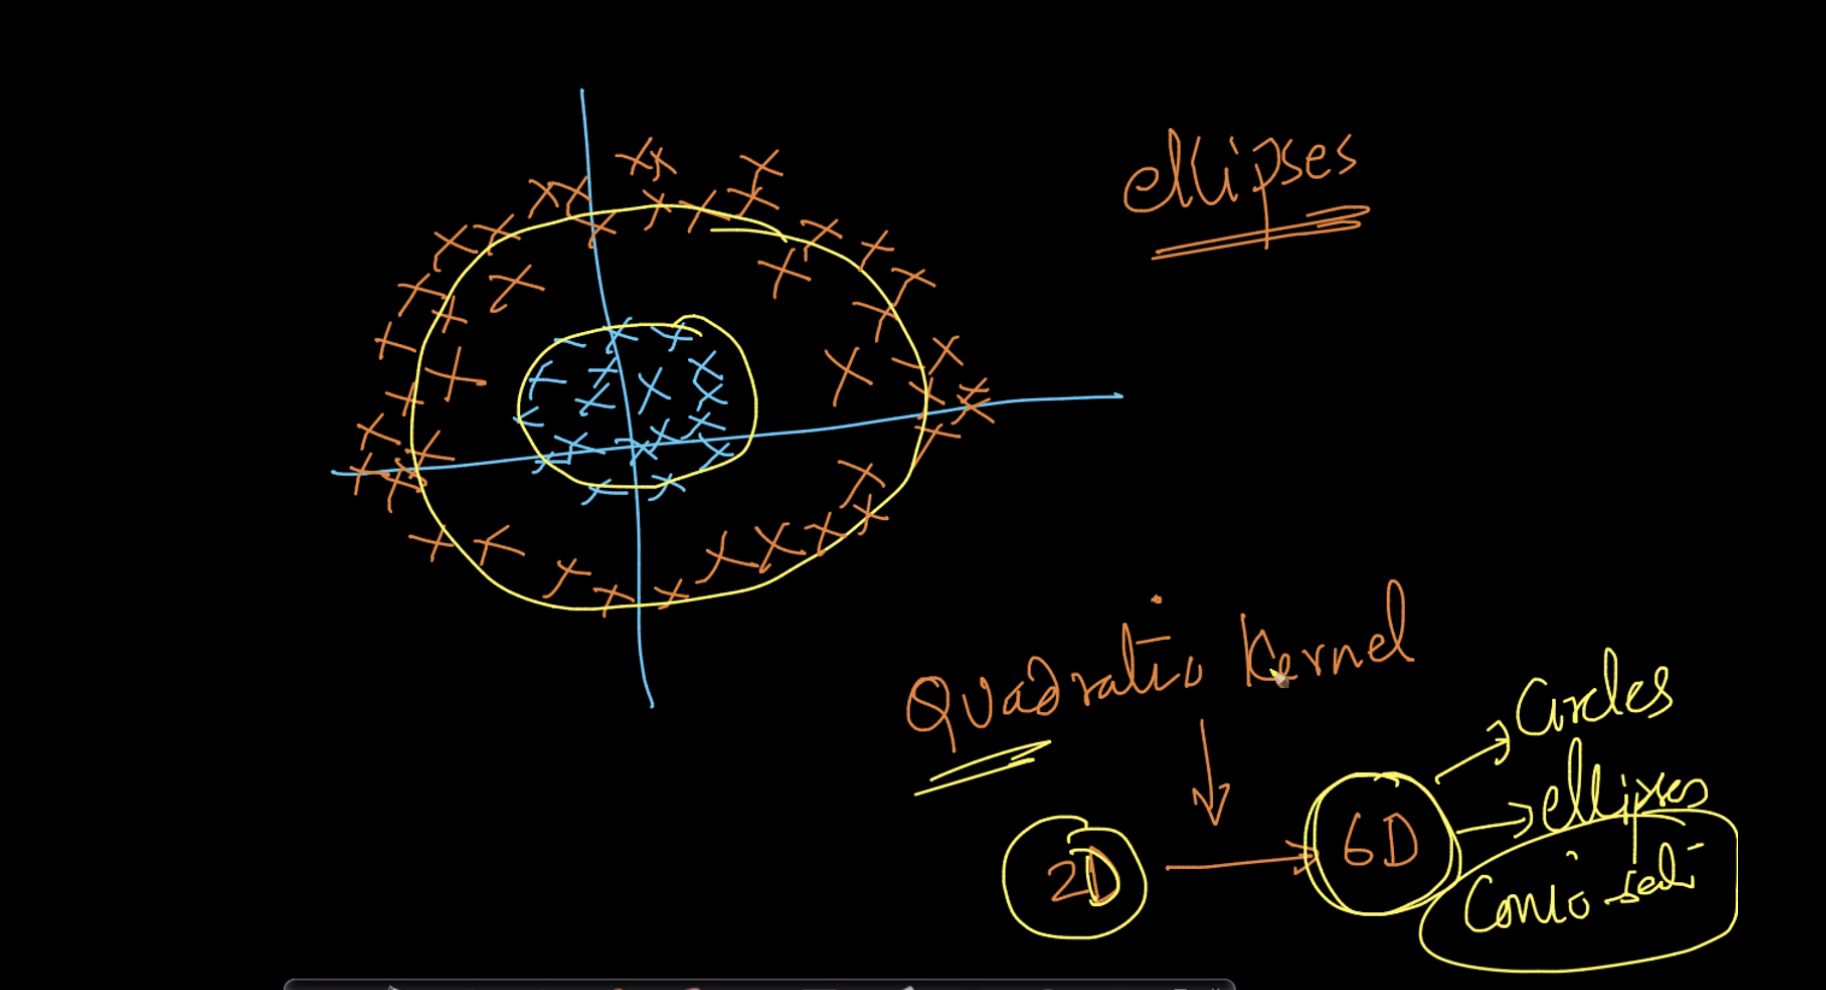 ellipses
Quadratic Kernel
Circles
ellipses
2D
6D
Conic sect